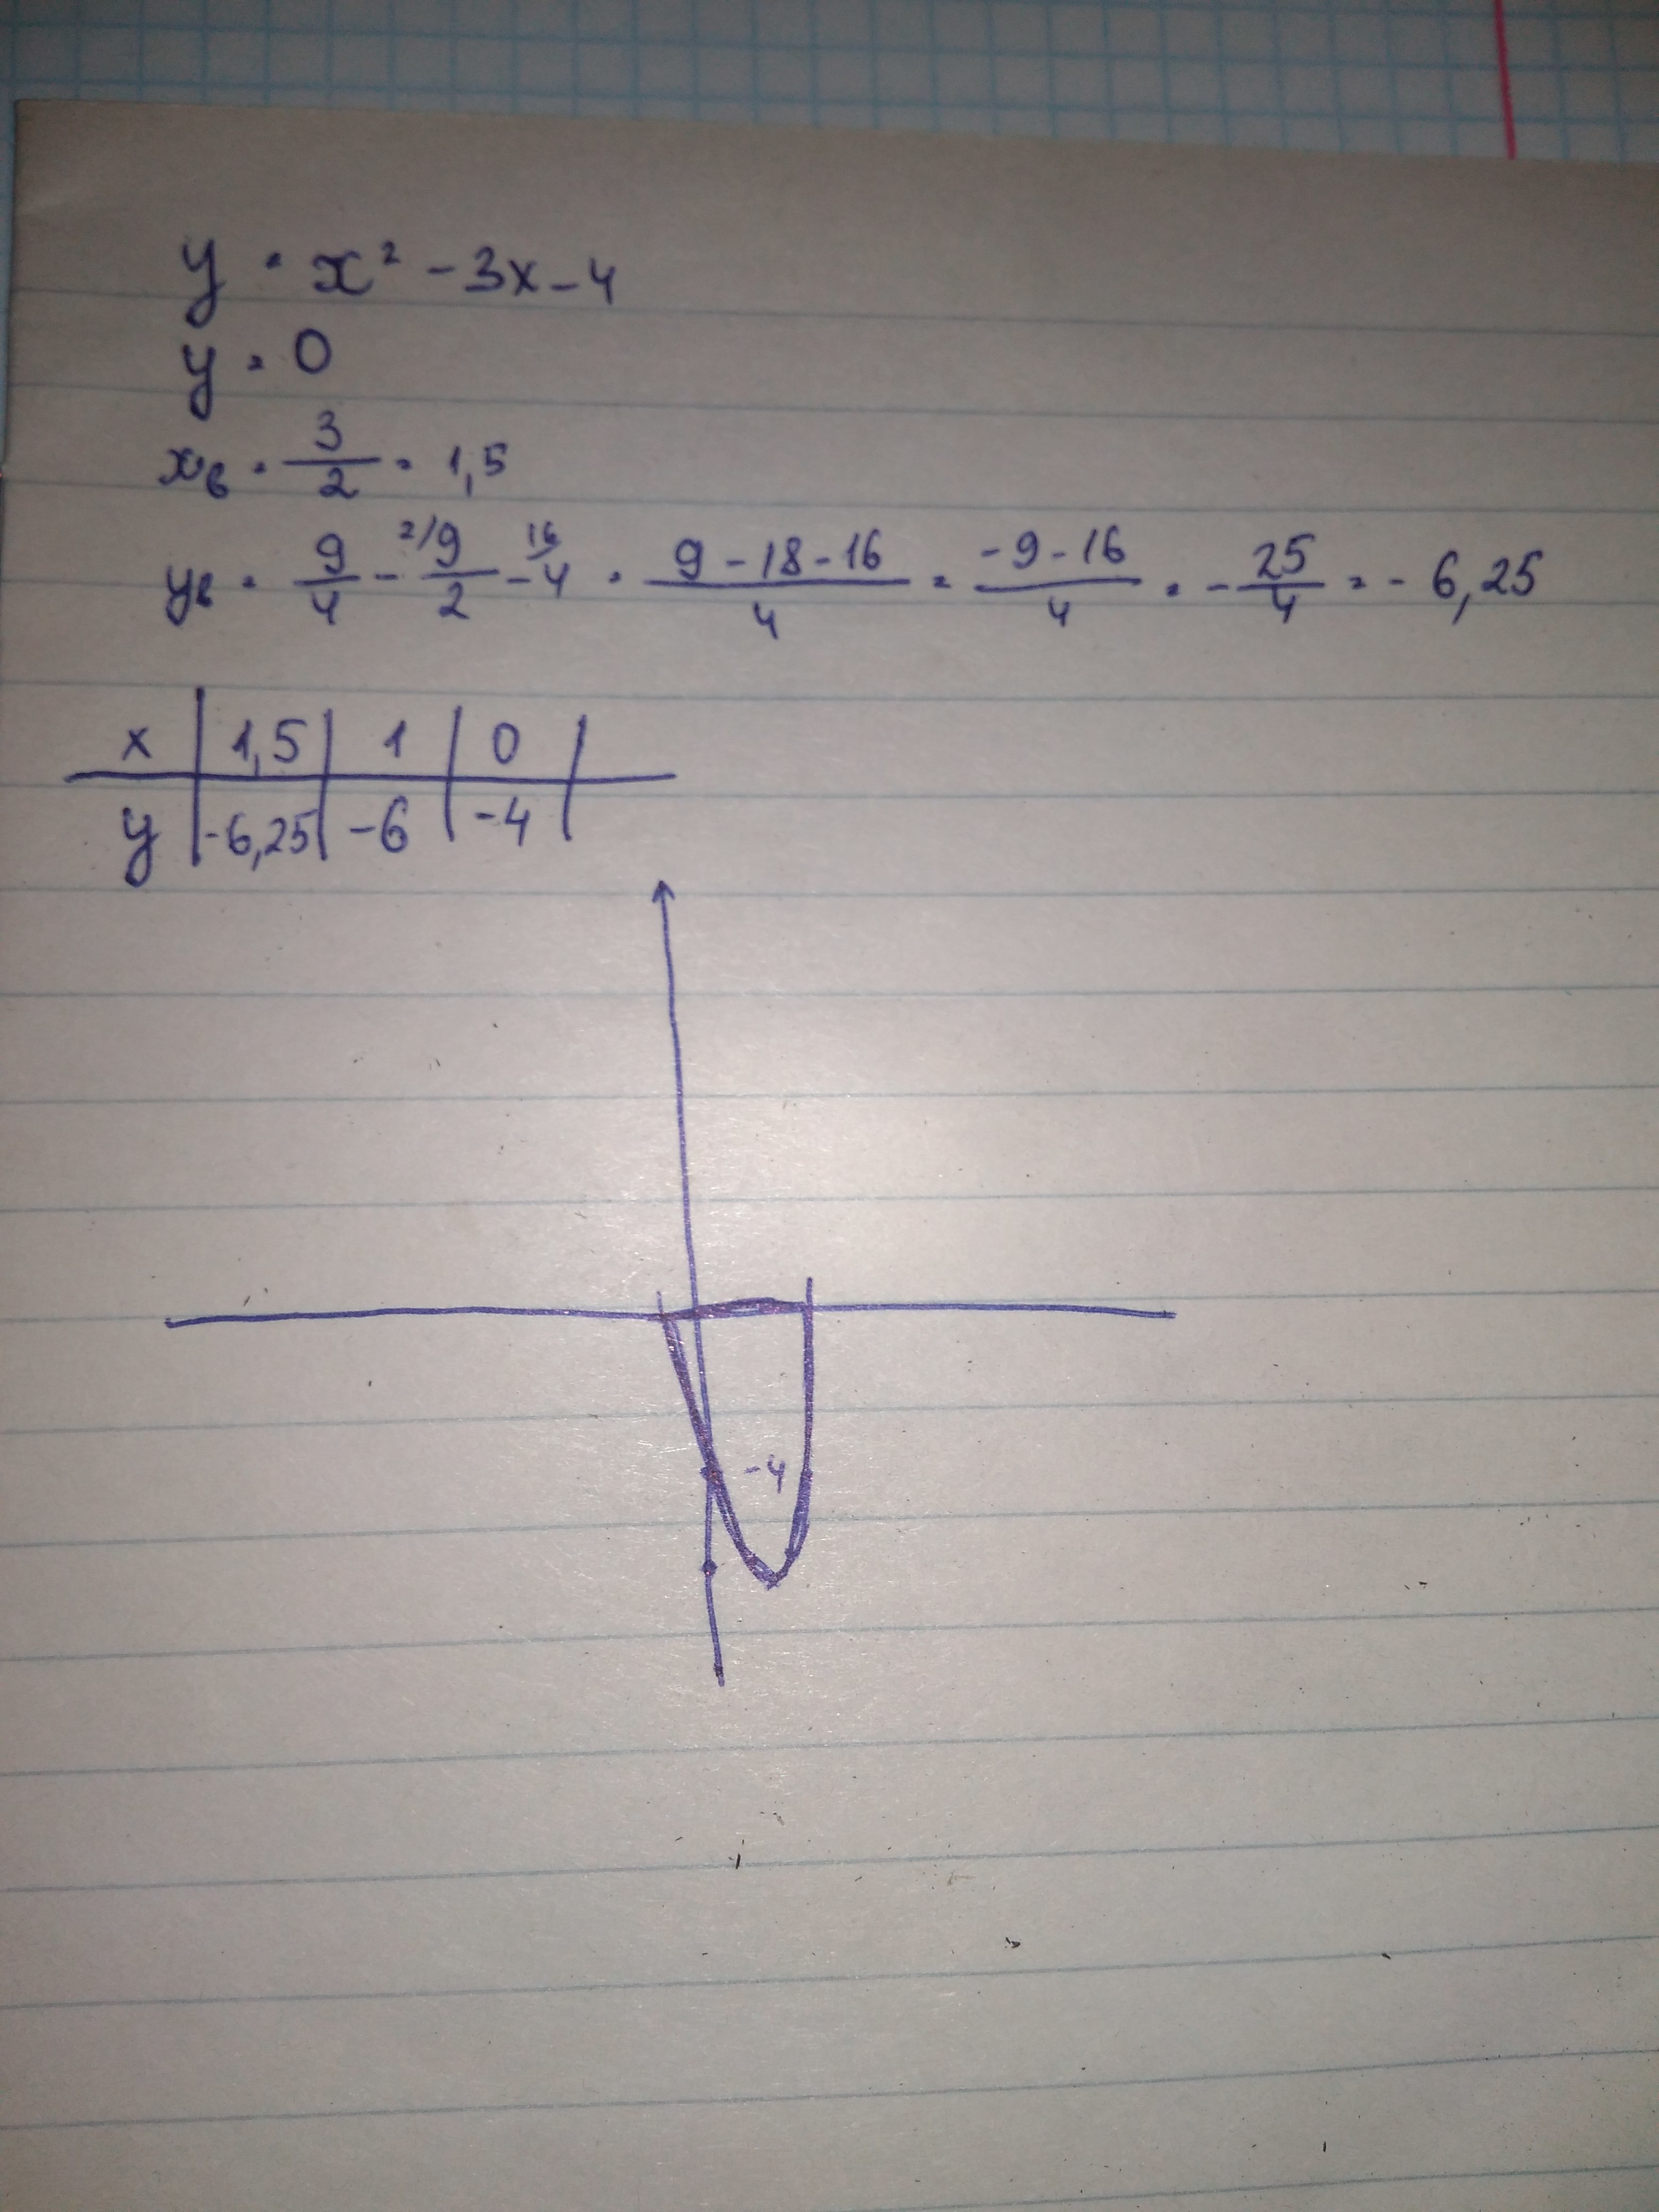 y = x² - 3x - 4
y = 0
xв = 3/2 = 1,5
yв = 9/4 - ²⁄9/2 - 16/-4 = 9 - 18 - 16/4 = -9 - 16/4 = - 25/4 = - 6,25
x | 1,5 | 1 | 0 |
y | -6,25 | -6 | -4 |
-4